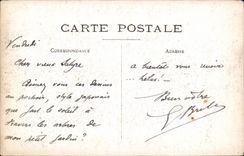 CARTE POSTALE
CORRESPONDANCE
ADRESSE
Vendredi
Cher vieux Satyre
Aimez vous ces dessins
au pochoir, style japonais
que fait le soleil à
travers les arbres de
mon petit jardin?
a bientôt vous revoir
... helas!..
Bien vôtre